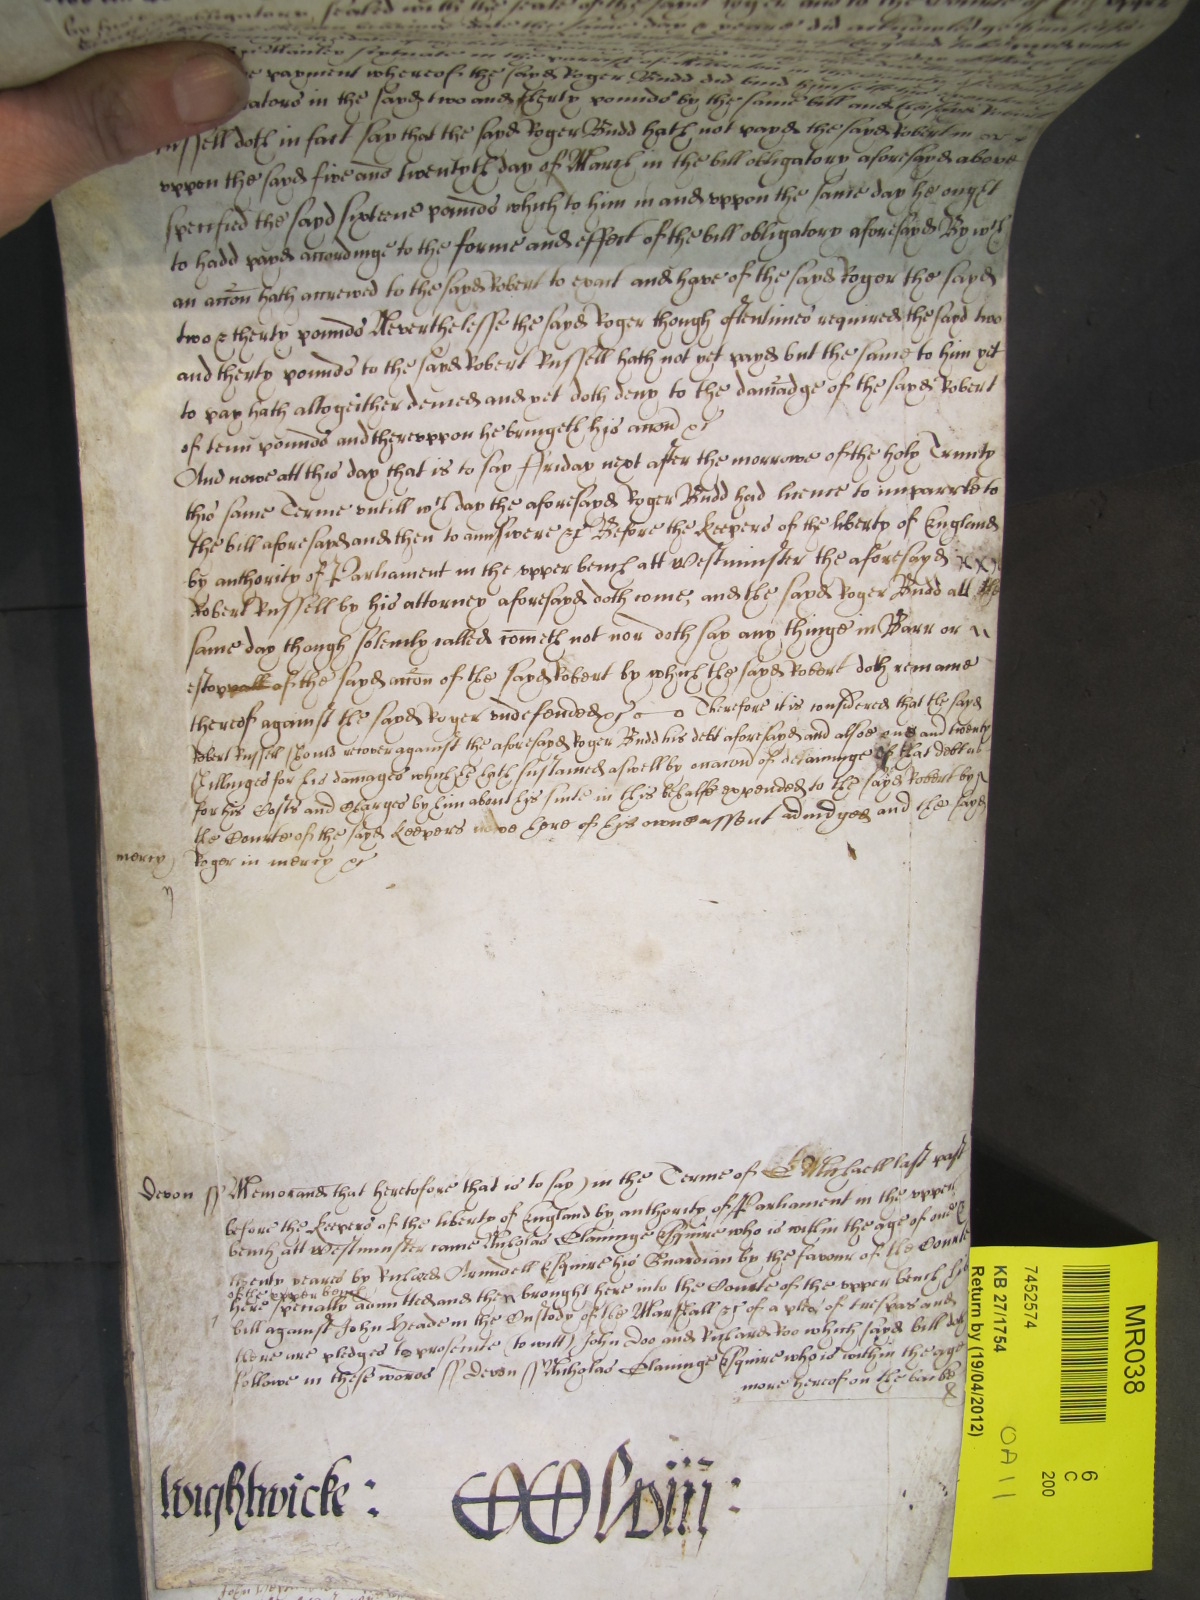 sealed with the seale of the sayd Roger
the payment whereof the sayd Roger Budd did bind himselfe
in the sayd two and therty pounds by the same bill and
Russell doth in fact say that the sayd Roger Budd hath not payd the sayd Robert in or
uppon the sayd five and twentyth day of March in the bill obligatory aforesayd above
specified the sayd sixteene pounds which to him in and uppon the same day he ought
to hadd payd accordinge to the forme and effect of the bill obligatory aforesayd By wch
an accon hath accrewed to the sayd Robert to exact and have of the sayd Roger the sayd
two & therty pounds Neverthelesse the sayd Roger though oftentimes required the sayd two
and therty pounds to the sayd Robert Russell hath not yet payd but the same to him yet
to pay hath altogeither denied and yet doth deny to the damadge of the sayd Robert
of tenn pounds and thereuppon he bringeth his accon &c
And nowe att this day that is to say ffriday next after the morrowe of the holy Trinity
this same Terme untill wch day the aforesayd Roger Budd had licence to imparle to
the bill aforesayd and then to annswere &c Before the Keepers of the liberty of England
by authority of Parliament in the upper bench att Westminster the aforesayd
Robert Russell by his attorney aforesayd doth come, and the sayd Roger Budd att the
same day though solemly called cometh not nor doth say any thinge in Barr or
estoppall of the sayd accon of the sayd Robert by which the sayd Robert doth remaine
thereof against the sayd Roger undefended &c Therefore it is considered that the sayd
Robert Russell should recover against the aforesayd Roger Budd his debt aforesayd and alsoe one and twenty
shillinges for his damages which he hath sustained aswell by occacon of detaininge of that debt as
for his Costs and Charges by him about his suite in this behalfe expended to the sayd Robert by
the Courte of the sayd Keepers nowe here of his owne assent adiudged and the sayd
mercy Roger in mercy &c
Devon ss Memorand that heretofore that is to say in the Terme of St Michaell last past
before the Keepers of the liberty of England by authority of Parliament in the upper
bench att Westminster came Nicholas Esquire who is within the age of one &
twenty yeares by Richard Arundell Esquire his Guardian by the favour of the Courte
of the upper bench
here specially admitted and then brought here into the Courte of the upper bench his
bill against John Heade in the Custody of the Marshall &c of a plea of trespas and
there are pledges to prosecute (to witt) John Doo and Richard Roo which sayd bill doth
followe in these words ss Devon ss Nicholas Esquire who is within the age
more hereof on the backe
Wightwicke :
CClviii :
MR038
6
C
200
7452574
KB 27/1754
Return by (19/04/2012)
OA 11